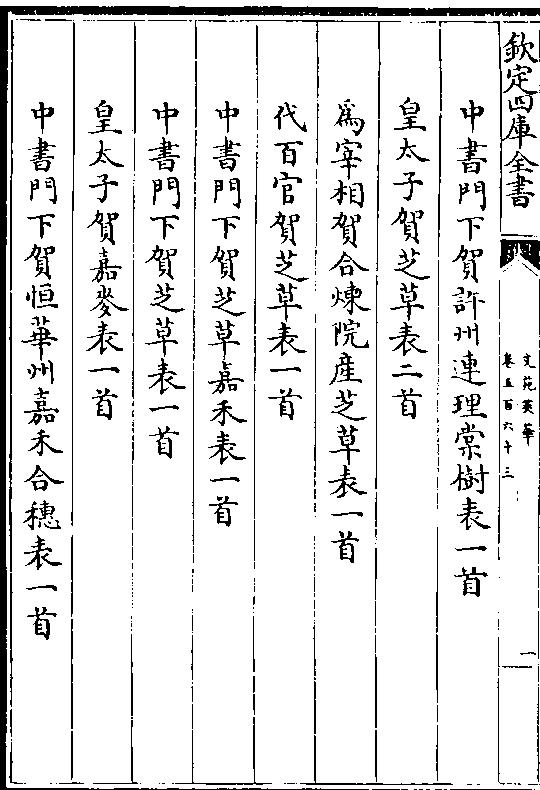 欽定四庫全書
文苑英華
卷五百六十三
一
中書門下賀許州連理棠樹表一首
皇太子賀芝草表二首
爲宰相賀合煉院産芝草表一首
代百官賀芝草表一首
中書門下賀芝草嘉禾表一首
中書門下賀芝草表一首
皇太子賀嘉麥表一首
中書門下賀恒華州嘉禾合穗表一首